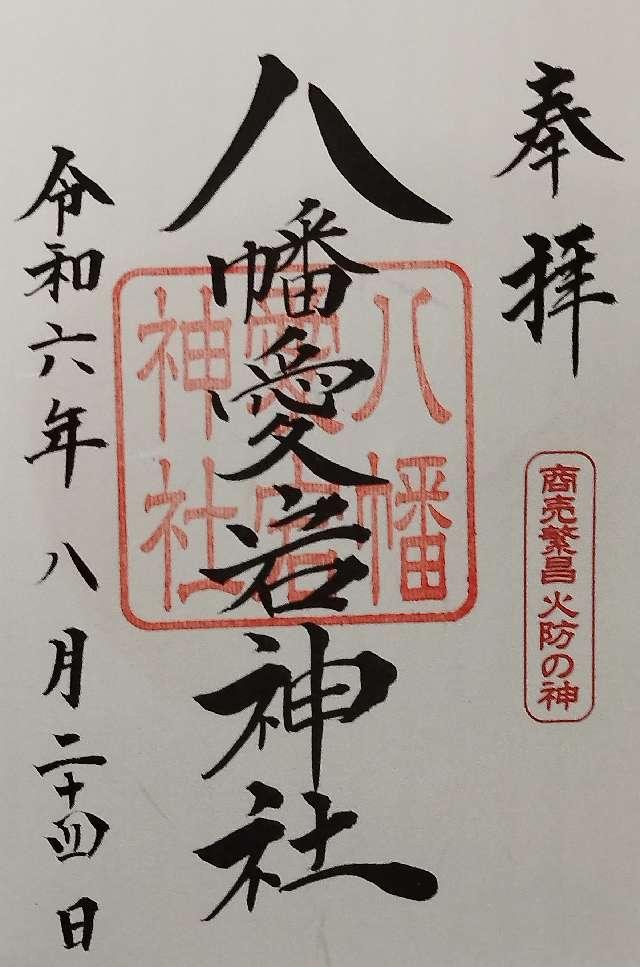 奉拝
商売繁昌 火防の神
八幡愛宕神社
八幡
愛宕
神社
令和六年 八月二十四日